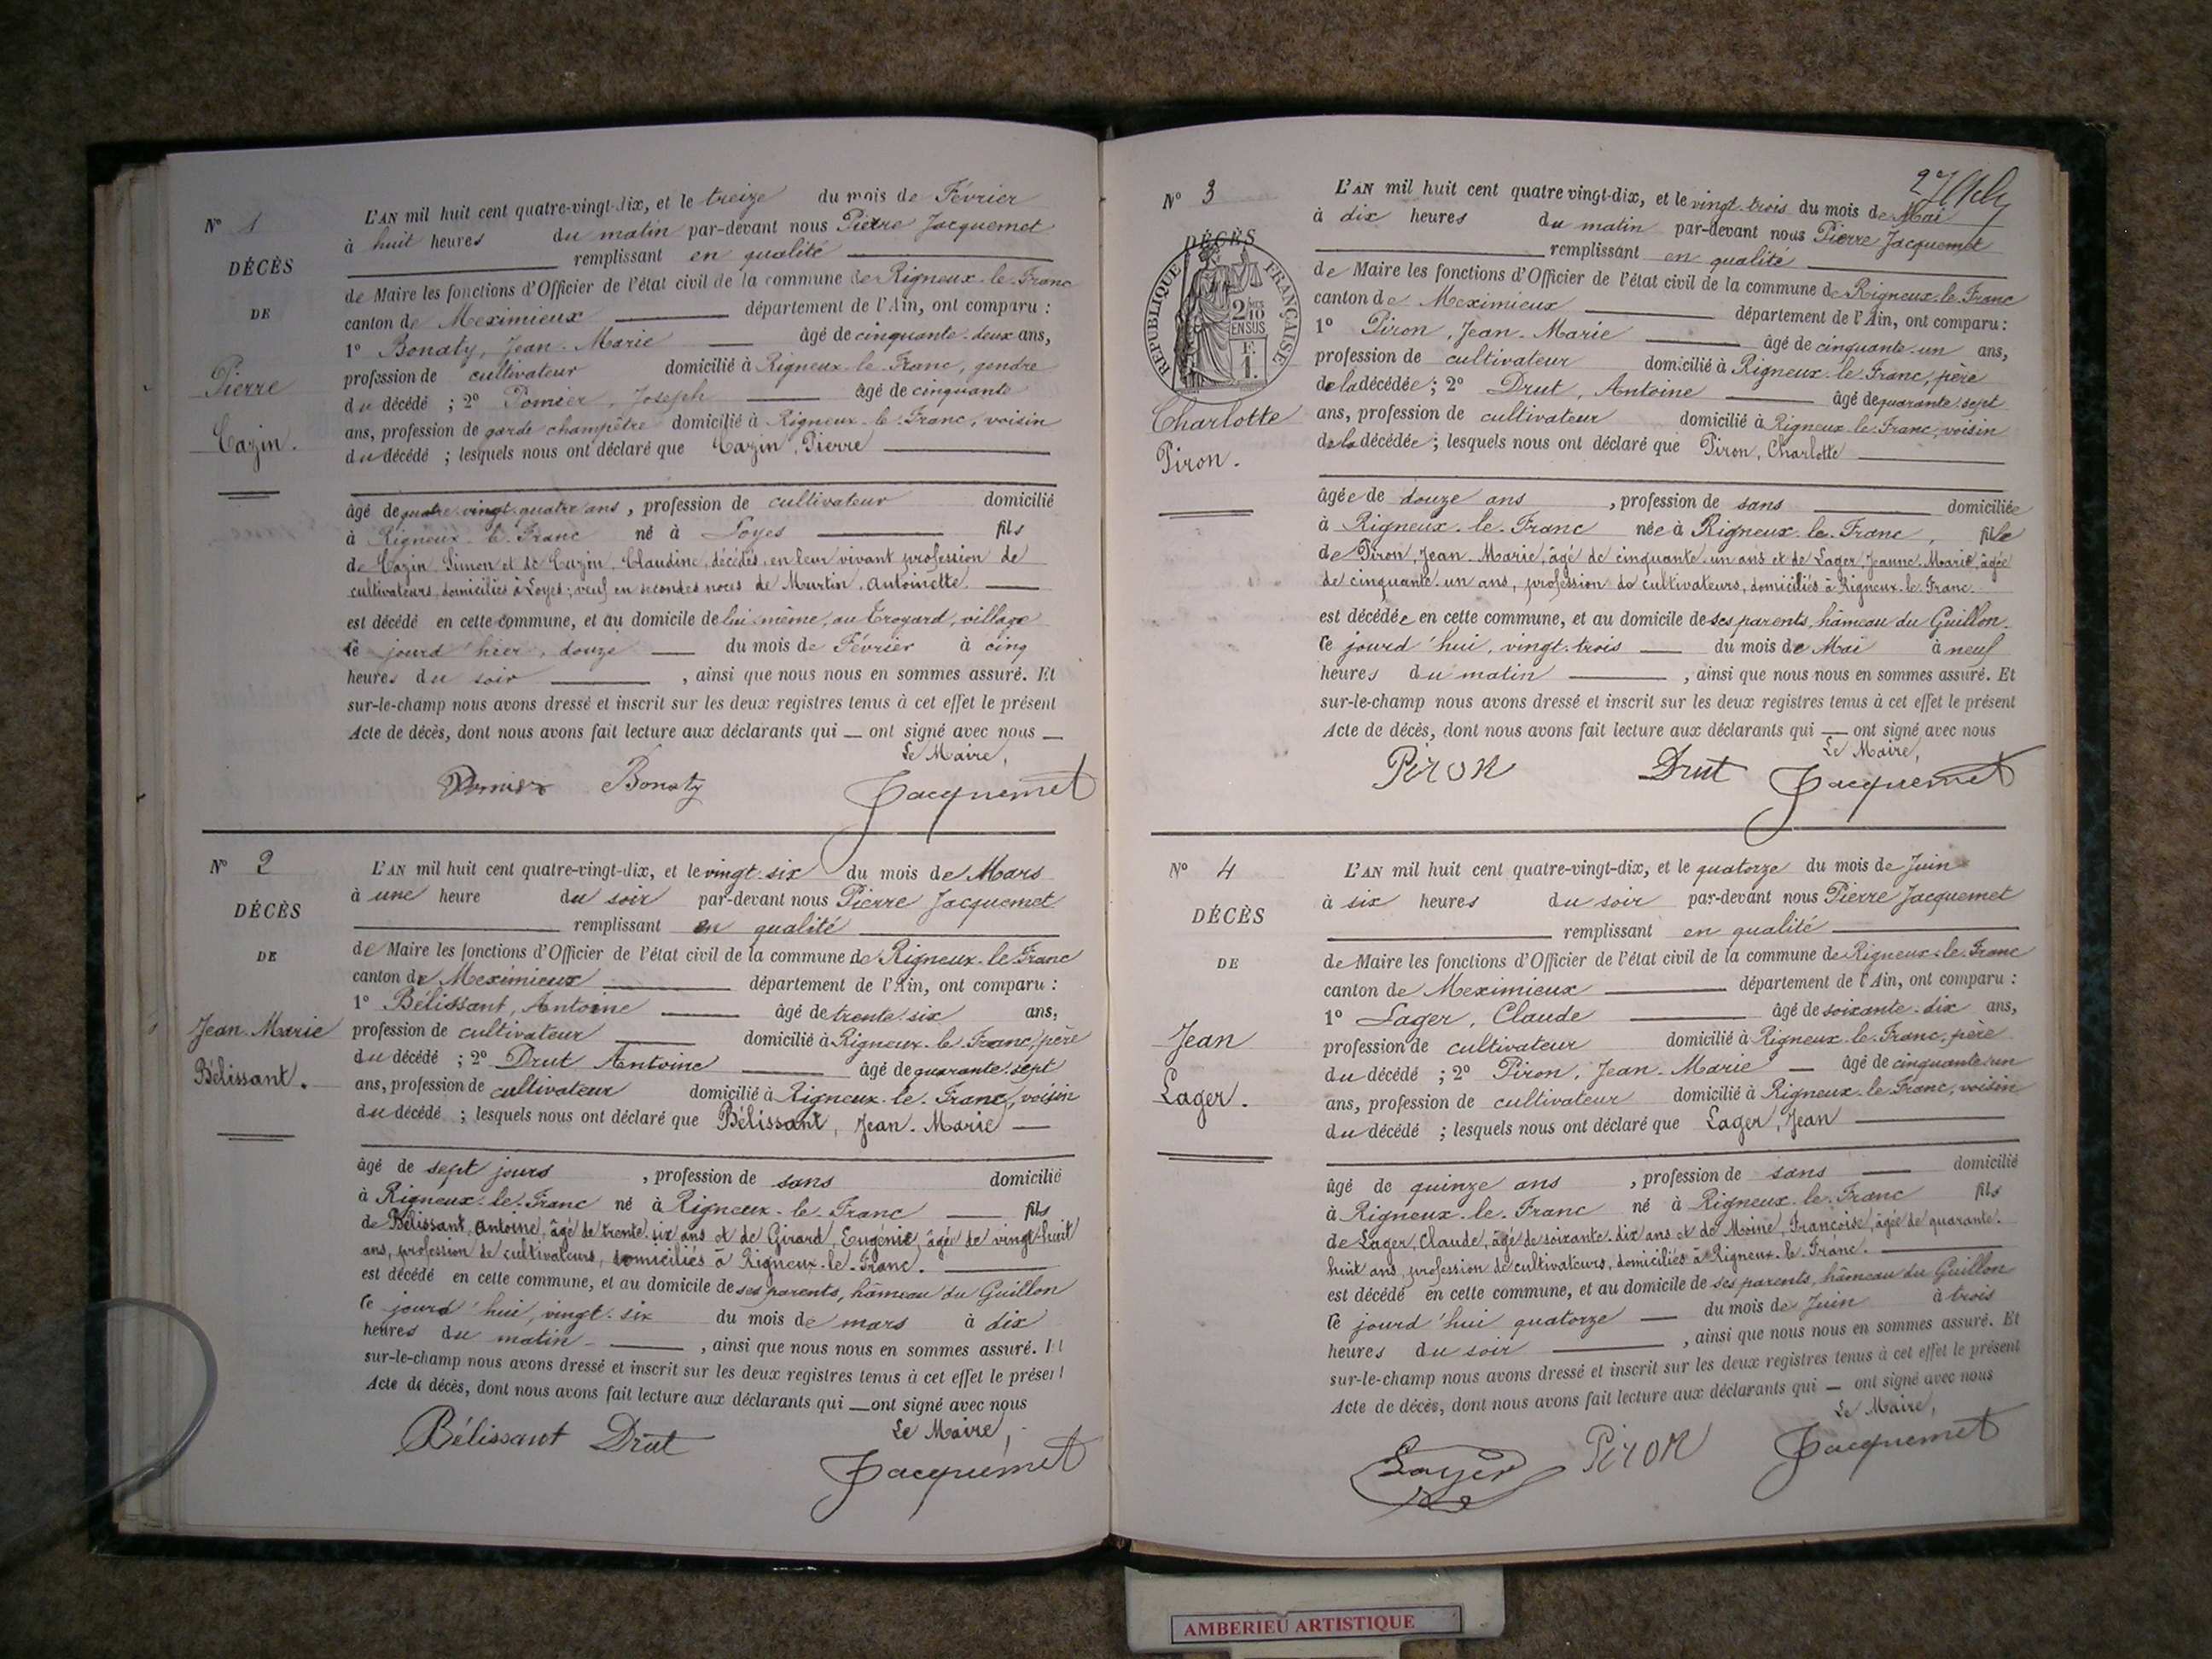 N° 1
DÉCÈS
DE
Pierre
Cazin.
L'AN mil huit cent quatre-vingt-dix, et le treize du mois de Février
à huit heures du matin par-devant nous Pierre Jacquemet
remplissant en qualité
de Maire les fonctions d'Officier de l'état civil de la commune de Rigneux-le-Franc
canton de Meximieux département de l'Ain, ont comparu :
1° Bonaty, Jean-Marie âgé de cinquante-deux ans,
profession de cultivateur domicilié à Rigneux-le-Franc, gendre
du décédé ; 2° Pomier, Joseph âgé de cinquante
ans, profession de garde champêtre domicilié à Rigneux-le-Franc, voisin
du décédé ; lesquels nous ont déclaré que Cazin, Pierre
âgé de quatre-vingt-quatre ans, profession de cultivateur domicilié
à Rigneux-le-Franc né à Loyes fils
de Cazin Simon et de Cazin, Claudine, décédés, en leur vivant profession de
cultivateurs, domiciliés à Loyes; veuf en secondes noces de Martin, Antoinette.
est décédé en cette commune, et au domicile de lui-même, au Croyard, village
le jourd'hier, douze du mois de Février à cinq
heures du soir , ainsi que nous nous en sommes assuré. Et
sur-le-champ nous avons dressé et inscrit sur les deux registres tenus à cet effet le présent
Acte de décès, dont nous avons fait lecture aux déclarants qui — ont signé avec nous —
Le Maire,
Pomier Bonaty Jacquemet
N° 2
DÉCÈS
DE
Jean-Marie
Bélissant.
L'AN mil huit cent quatre-vingt-dix, et le vingt-six du mois de Mars
à une heure du soir par-devant nous Pierre Jacquemet
remplissant en qualité
de Maire les fonctions d'Officier de l'état civil de la commune de Rigneux-le-Franc
canton de Meximieux département de l'Ain, ont comparu :
1° Bélissant, Antoine âgé de trente-six ans,
profession de cultivateur domicilié à Rigneux-le-Franc, père
du décédé ; 2° Drut Antoine âgé de quarante-sept
ans, profession de cultivateur domicilié à Rigneux-le-Franc, voisin
du décédé ; lesquels nous ont déclaré que Bélissant, Jean-Marie
âgé de sept jours , profession de sans domicilié
à Rigneux-le-Franc né à Rigneux-le-Franc fils
de Bélissant, Antoine, âgé de trente-six ans et de Girard, Eugénie, âgée de vingt-huit
ans, profession de cultivateurs, domiciliés à Rigneux-le-Franc.
est décédé en cette commune, et au domicile de ses parents, hâmeau du Guillon
le jourd'hui, vingt-six du mois de mars à dix
heures du matin , ainsi que nous nous en sommes assuré. Et
sur-le-champ nous avons dressé et inscrit sur les deux registres tenus à cet effet le présent
Acte de décès, dont nous avons fait lecture aux déclarants qui — ont signé avec nous
Le Maire,
Bélissant Drut Jacquemet
N° 3
DÉCÈS
RÉPUBLIQUE FRANÇAISE
2/10
EN SUS
Charlotte
Piron.
L'AN mil huit cent quatre vingt-dix, et le vingt-trois du mois de Mai
à dix heures du matin par-devant nous Pierre Jacquemet
remplissant en qualité
de Maire les fonctions d'Officier de l'état civil de la commune de Rigneux-le-Franc
canton de Meximieux département de l'Ain, ont comparu :
1° Piron, Jean-Marie âgé de cinquante-un ans,
profession de cultivateur domicilié à Rigneux-le-Franc, père
de la décédée ; 2° Drut, Antoine âgé de quarante-sept
ans, profession de cultivateur domicilié à Rigneux-le-Franc, voisin
de la décédée ; lesquels nous ont déclaré que Piron, Charlotte
âgée de douze ans , profession de sans domiciliée
à Rigneux-le-Franc née à Rigneux-le-Franc, fille
de Piron, Jean-Marie, âgé de cinquante-un ans et de Lager, Jeanne-Marie, âgée
de cinquante-un ans, profession de cultivateurs, domiciliés à Rigneux-le-Franc.
est décédée en cette commune, et au domicile de ses parents, hâmeau du Guillon.
le jourd'hui, vingt-trois du mois de Mai à neuf
heures du matin , ainsi que nous nous en sommes assuré. Et
sur-le-champ nous avons dressé et inscrit sur les deux registres tenus à cet effet le présent
Acte de décès, dont nous avons fait lecture aux déclarants qui — ont signé avec nous
Le Maire,
Piron Drut Jacquemet
N° 4
DÉCÈS
DE
Jean
Lager.
L'AN mil huit cent quatre-vingt-dix, et le quatorze du mois de Juin
à six heures du soir par-devant nous Pierre Jacquemet
remplissant en qualité
de Maire les fonctions d'Officier de l'état civil de la commune de Rigneux-le-Franc
canton de Meximieux département de l'Ain, ont comparu :
1° Lager, Claude âgé de soixante-dix ans,
profession de cultivateur domicilié à Rigneux-le-Franc, père
du décédé ; 2° Piron, Jean-Marie âgé de cinquante-un
ans, profession de cultivateur domicilié à Rigneux-le-Franc, voisin
du décédé ; lesquels nous ont déclaré que Lager, Jean
âgé de quinze ans , profession de sans domicilié
à Rigneux-le-Franc né à Rigneux-le-Franc fils
de Lager, Claude, âgé de soixante-dix ans et de Moine, Françoise, âgée de quarante-
huit ans, profession de cultivateurs, domiciliés à Rigneux-le-Franc.
est décédé en cette commune, et au domicile de ses parents, hâmeau du Guillon
le jourd'hui quatorze du mois de Juin à trois
heures du soir , ainsi que nous nous en sommes assuré. Et
sur-le-champ nous avons dressé et inscrit sur les deux registres tenus à cet effet le présent
Acte de décès, dont nous avons fait lecture aux déclarants qui — ont signé avec nous
Le Maire,
Lager Piron Jacquemet
AMBERIEU ARTISTIQUE